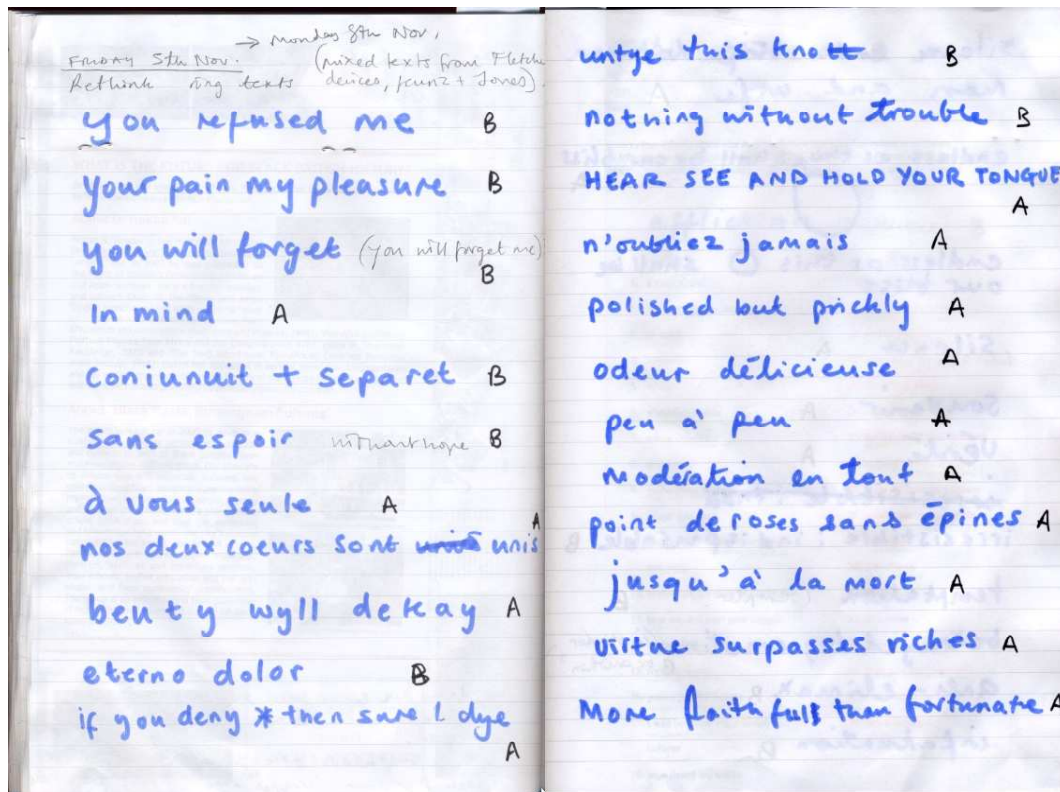 → Monday 8th Nov.
Friday 5th Nov. (mixed texts from
Rethink ring texts devices, Kunz + Jones)
you refused me B
your pain my pleasure B
you will forget (you will forget me)
B
In mind A
Coniunuit + separet B
sans espoir without hope B
à vous seule A
A
nos deux coeurs sont unis
beuty wyll dekay A
eterno dolor B
if you deny * then sure I dye
A
untye this knott B
nothing without trouble B
HEAR SEE AND HOLD YOUR TONGUE
A
n'oubliez jamais A
polished but prickly A
odeur délicieuse A
peu à peu A
modération en tout A
point de roses sans épines A
jusqu'à la mort A
virtue surpasses riches A
More faithfull than fortunate A